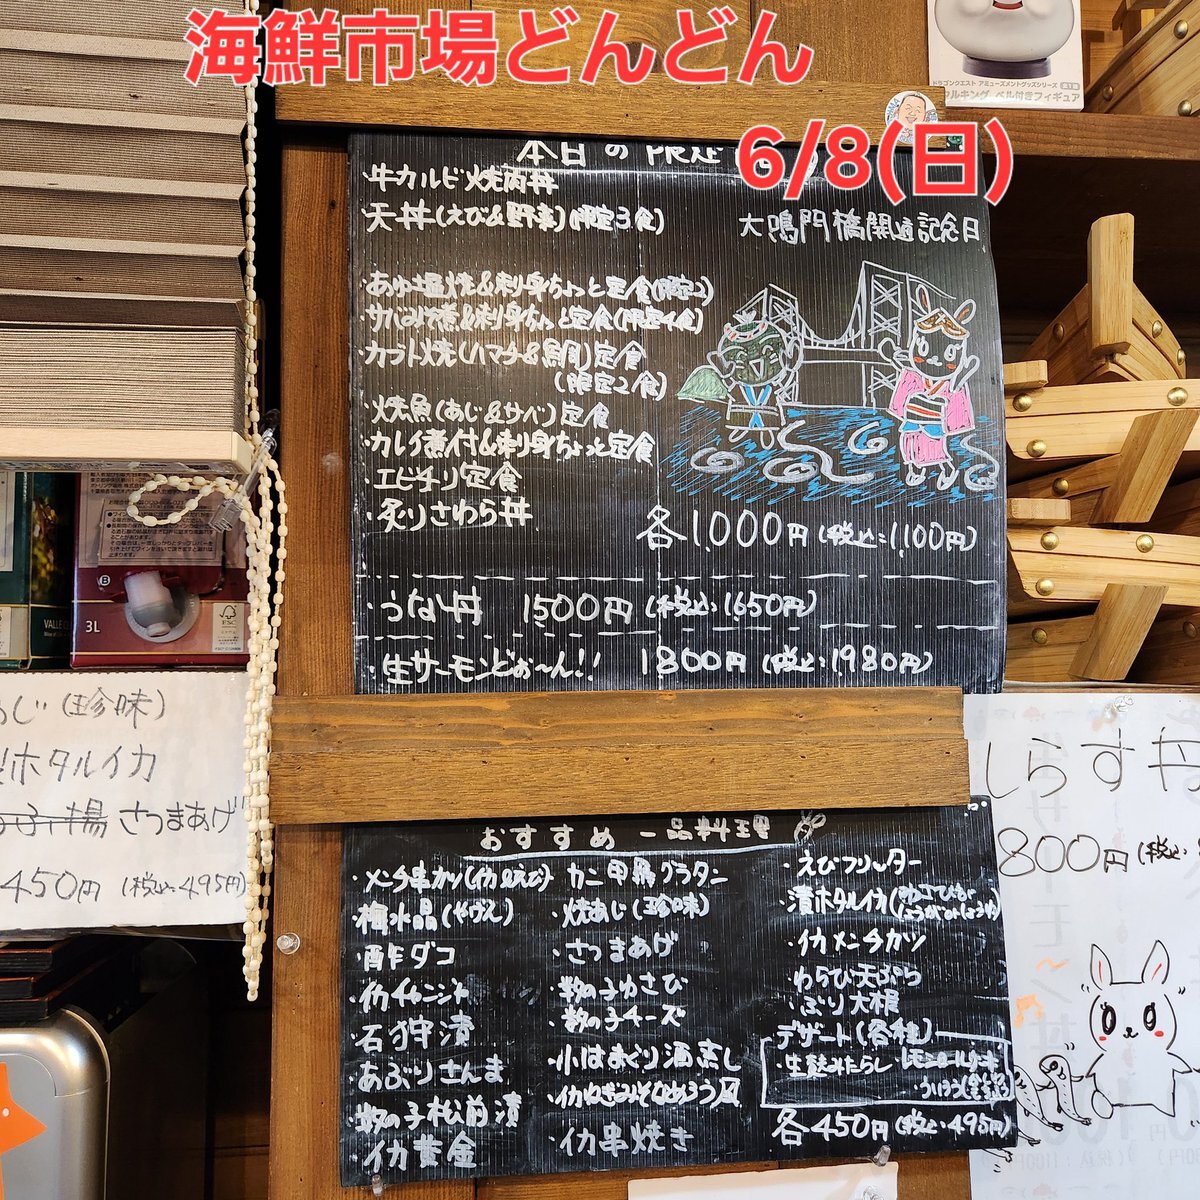 海鮮市場どんどん
6/8(日)
本日の限定
・牛カルビ焼肉丼
・天丼(えび&野菜)(限定3食)
大鳴門橋開通記念日
・あゆ塩焼&刺身ちょっと定食(限定2)
・サバみそ煮&刺身ちょっと定食(限定4食)
・カブト焼(ハマチ&鯛)定食
(限定2食)
・焼魚(あじ&サバ)定食
・カレイ煮付&刺身ちょっと定食
・エビチリ定食
・炙りさわら丼
各1,000円(税込:1,100円)
・うな丼 1500円(税込:1,650円)
・生サーモンどぉ〜ん!! 1800円(税込:1980円)
おすすめ一品料理
・メンチ串カツ(イカ&えび)
・梅水晶(やげん)
・酢ダコ
・イカチャンジャ
・石狩漬
・あぶりさんま
・数の子松前漬
・イカ黄金
・カニ甲羅グラタン
・焼あじ(珍味)
・さつまあげ
・数の子わさび
・数の子チーズ
・小はまぐり酒蒸し
・イカねぎみそなめろう風
・イカ串焼き
・えびフリッター
・漬ホタルイカ
・イカメンチカツ
・わらび天ぷら
・ぶり大根
・デザート(各種)
・生麩みたらし
ういろう
各450円(税込:495円)
あじ(珍味)
ホタルイカ
さつまあげ
450円(税込:495円)
しらす丼
800円(税込:
ドラゴンクエスト アミューズメントグッズシリーズ
ベル付きフィギュア
3L
FSC